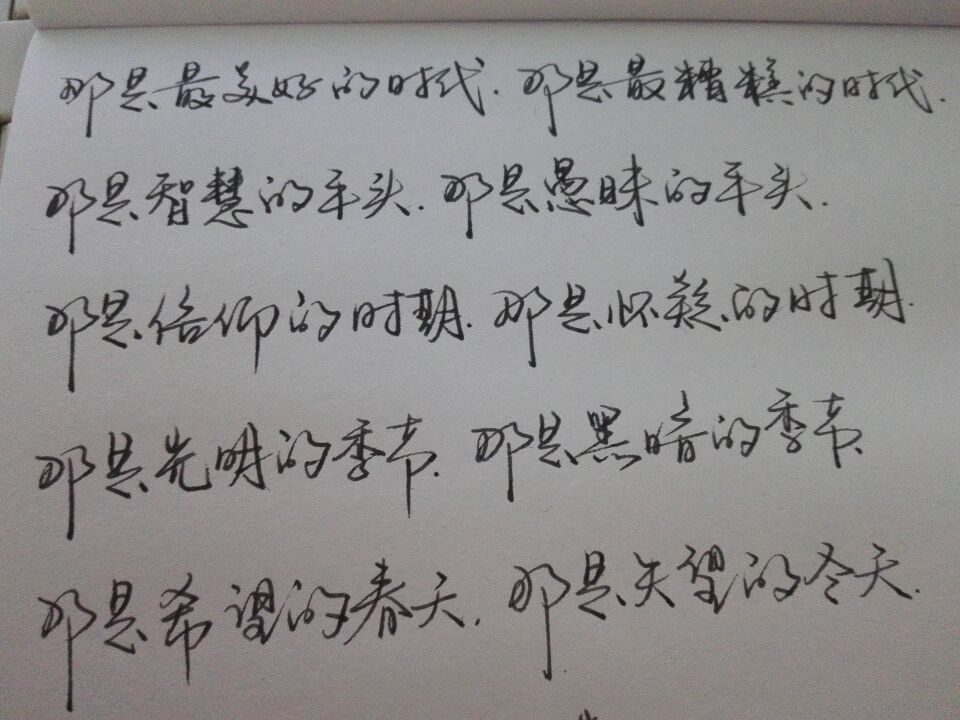 那是最美好的时代.那是最糟糕的时代.
那是智慧的年头.那是愚昧的年头.
那是信仰的时期.那是怀疑的时期.
那是光明的季节.那是黑暗的季节.
那是希望的春天.那是失望的冬天.